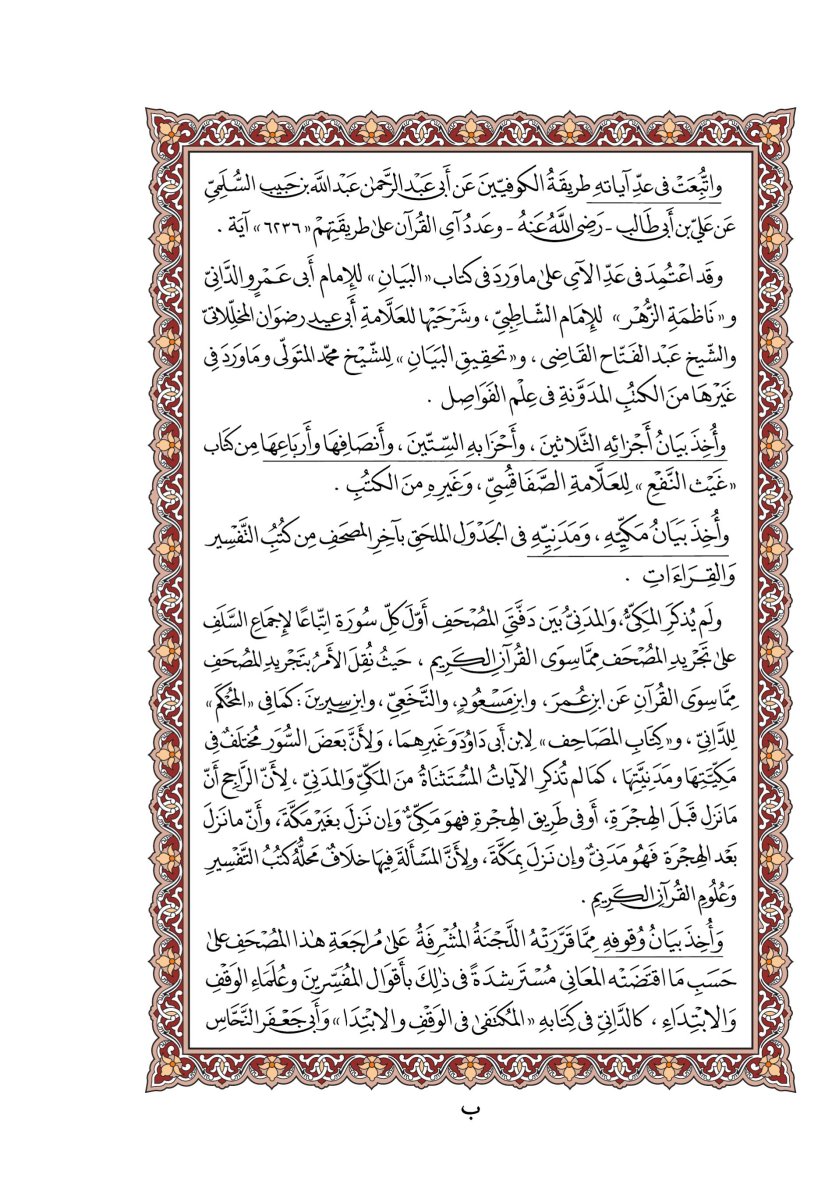 واتُّبِعَتْ فى عدِّ آياتهِ طريقَةُ الكوفيّينَ عَن أَبى عَبدِ الرَّحمٰن عَبد اللَّه بن حَبيبٍ السُّلَمِيِّ
عَن عَلىّ بن أَبى طَالب - رَضِى اللَّهُ عَنهُ - وعَدد آى القُرآن على طريقَتِهِمْ « ٦٢٣٦ » آيَة .
وقَد اعْتُمِدَ فى عَدِّ الآى على ماورَدَ فى كتاب « البَيَانِ » للإمام أَبى عَمْرٍو الدَّانىِّ
و« نَاظمَةِ الزُّهْر » للإمَام الشَّاطِبىِّ ، وشَرْحَيْها للعَلَّامةِ أبى عيد رضوَان المخلِّلاتىِّ
والشّيخ عَبْد الفَتّاح القَاضِى ، و« تحقِيق البَيَانِ » لِلشّيْخ محمّد المتَولّى ومَاوَرَدَ فى
غَيْرهَا منَ الكتُبِ المدَوَّنةِ فى عِلْم الفَوَاصِل .
وأُخِذَ بيَانُ أَجْزائِه الثَّلاثينَ ، وأحْزَابهِ السِّتّينَ ، وأَنصَافِهَا وأَربَاعِهَا مِن كتَاب
« غَيْث النَّفْعِ » لِلعَلَّامةِ الصَّفَاقُسِىِّ ، وَغَيرِهِ منَ الكتُبِ .
وأُخِذَ بَيَانُ مَكِّيِّهِ ، وَمَدَنِيِّهِ فى الجَدْوَل الملحَقِ بآخِرِ المصحَفِ مِن كتُبُ التَّفْسِير
وَالقِرَاءَاتِ .
ولَم يُذكَرِ المَكىُّ، وَالمدَنىُّ بَين دَفَّتَىِ المُصْحَفِ أَوّلَ كلِّ سُورَة اتِّبَاعًا لإجماع السَّلَفِ
علىٰ تَجْرِيد المُصْحَف ممَّا سِوَى القُرآنِ الكَرِيم ، حَيثُ نُقِلَ الأمْرُ بتَجرِيد المُصحَفِ
مِمَّا سِوَى القُرآنِ عَن ابنِ عُمرَ ، وابنِ مَسْعُودٍ، والنَّخَعِىِّ ، وابن سِيرِينَ : كَمَا فِى « المُحْكَم »
لِلدَّانِىّ ، و« كِتَابِ المصَاحِف » لابن أَبى دَاوُد وَغَيرِهمَا ، وَلأَنَّ بَعضَ السُّوَر مُختَلَفٌ فى
مَكِّيَّتِهَا ومَدَنيَّتِهَا ، كمَا لم تُذكَرِ الآياتُ المُسْتَثناةُ منَ المكىِّ وَالمدَنىّ ، لأنّ الرَّاجِح أَنّ
مَا نَزل قَبلَ الهِجْرَةِ، أَو فى طَرِيق الهِجْرةِ فهوَ مَكىٌّ وَإن نَزلَ بغَيْر مَكَّةَ ، وأَنّ ما نَزَلَ
بَعْد الهِجْرَة فَهُو مَدَنىٌّ وإن نَزلَ بِمكَّةَ ، ولِأنَّ المَسْأَلَة فِيهَا خلَافٌ محَلُّه كتُبُ التَّفْسِيرِ
وَعُلُومِ القُرآنِ الكَرِيمِ .
وَأُخِذَ بيَانُ وُقوفهِ مِمَّا قَرَّرَتْهُ اللَّجْنَةُ المُشْرِفَةُ عَلىٰ مُرَاجَعةِ هٰذا المُصْحَفِ علىٰ
حَسَبِ مَا اقتَضَتْه المعَانى مُسْتَرشدَةً فى ذٰلكَ بأَقوَال المفُسِّرِينَ وعُلَمَاءِ الوَقْفِ
وَالابْتِدَاءِ ، كالدَّانىِّ فى كِتَابهِ « المُكتَفىٰ فى الوَقْفِ والابْتِدَا » وَأَبى جَعفَر النَّحَّاس
ب